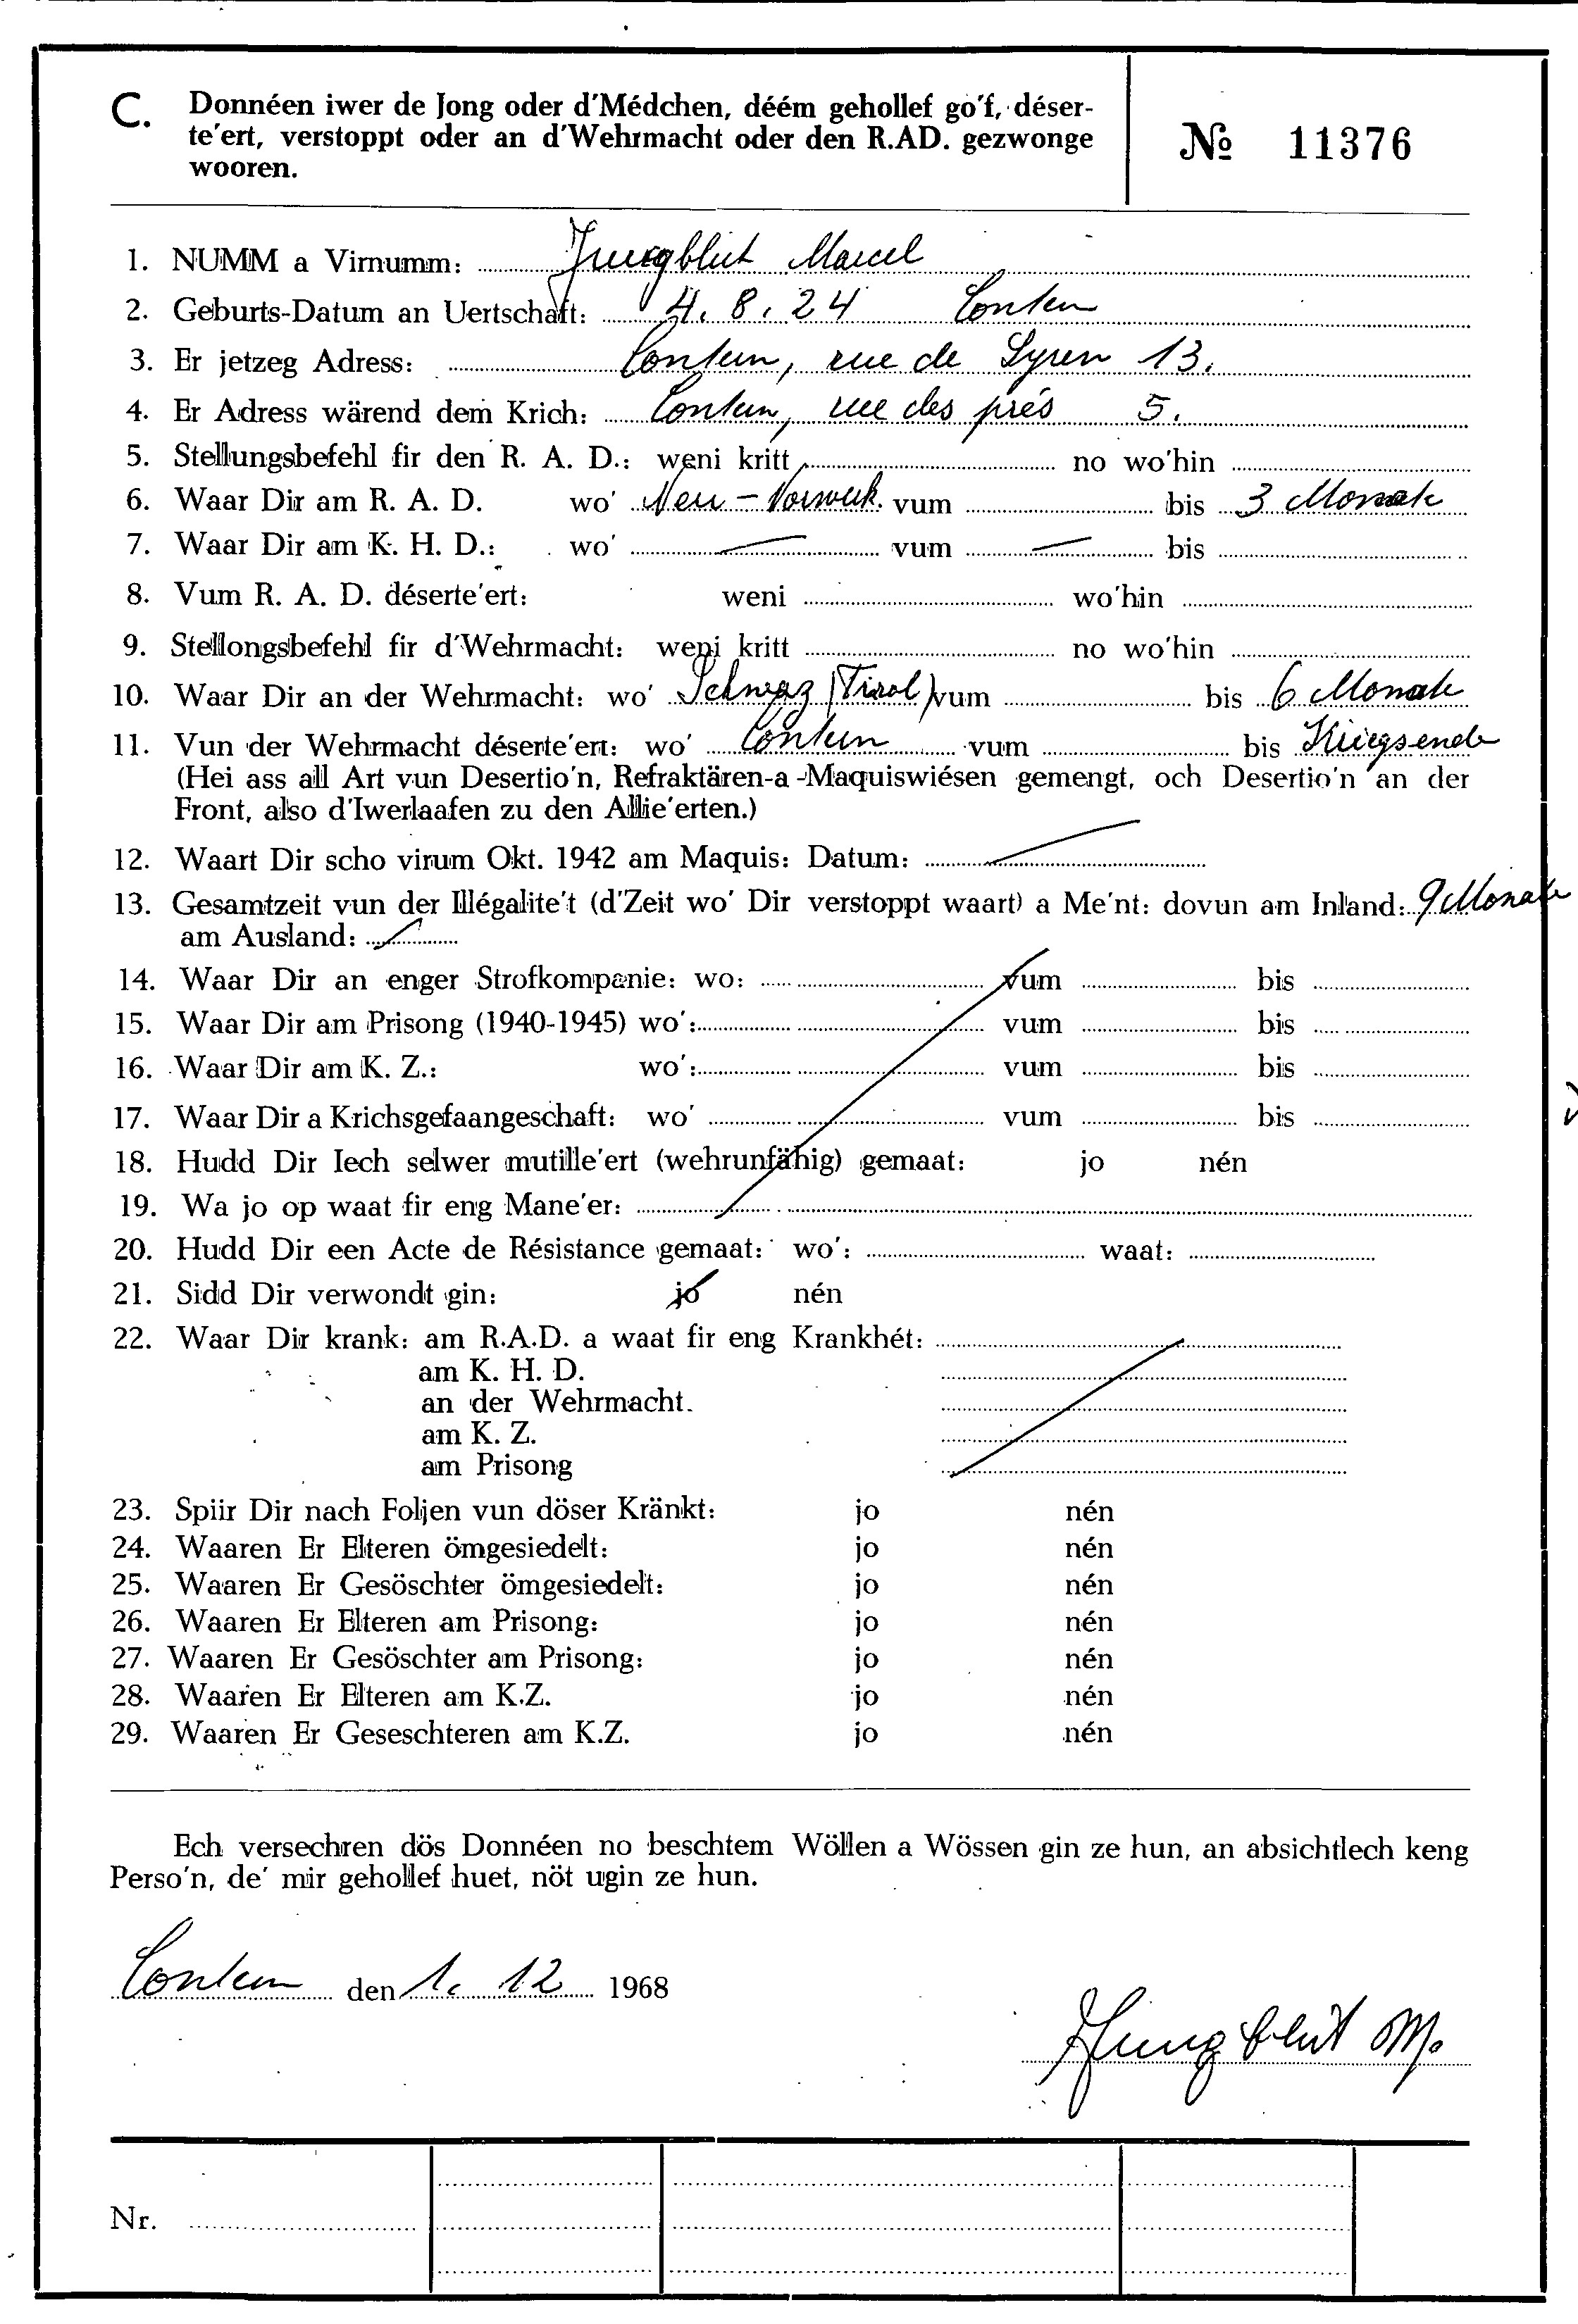 C. Donnéen iwer de Jong oder d'Médchen, déém gehollef go'f, déser-
te'ert, verstoppt oder an d'Wehrmacht oder den R.AD. gezwonge
wooren.
№ 11376
1. NUMM a Virnumm: Jungblut Marcel
2. Geburts-Datum an Uertschaft: 4. 8. 24 Contern
3. Er jetzeg Adress: Contern, rue de Syren 13.
4. Er Adress wärend dem Krich: Contern, rue des prés 5.
5. Stellungsbefehl fir den R. A. D.: weni kritt no wo'hin
6. Waar Dir am R. A. D. wo' Neu-Vorwerk vum bis 3 Monate
7. Waar Dir am K. H. D.: wo' — vum — bis
8. Vum R. A. D. déserte'ert: weni wo'hin
9. Stellongsbefehl fir d'Wehrmacht: weni kritt no wo'hin
10. Waar Dir an der Wehrmacht: wo' Schwaz (Tirol) vum bis 6 Monate
11. Vun der Wehrmacht déserte'ert: wo' Contern vum bis Kriegsende
(Hei ass all Art vun Desertio'n, Refraktären-a-Maquiswiésen gemengt, och Desertio'n an der
Front, also d'Iwerlaafen zu den Allie'erten.)
12. Waart Dir scho virum Okt. 1942 am Maquis: Datum:
13. Gesamtzeit vun der Illégalite't (d'Zeit wo' Dir verstoppt waart) a Me'nt: dovun am Inland: 9 Monate
am Ausland:
14. Waar Dir an enger Strofkompanie: wo: vum bis
15. Waar Dir am Prisong (1940-1945) wo': vum bis
16. Waar Dir am K. Z.: wo': vum bis
17. Waar Dir a Krichsgefaangeschaft: wo' vum bis
18. Hudd Dir Iech selwer mutille'ert (wehrunfähig) gemaat: jo nén
19. Wa jo op waat fir eng Mane'er:
20. Hudd Dir een Acte de Résistance gemaat: wo': waat:
21. Sidd Dir verwondt gin: jo nén
22. Waar Dir krank: am R.A.D. a waat fir eng Krankhét:
am K. H. D.
an der Wehrmacht.
am K. Z.
am Prisong
23. Spiir Dir nach Foljen vun döser Kränkt: jo nén
24. Waaren Er Elteren ömgesiedelt: jo nén
25. Waaren Er Gesöschter ömgesiedelt: jo nén
26. Waaren Er Elteren am Prisong: jo nén
27. Waaren Er Gesöschter am Prisong: jo nén
28. Waaren Er Elteren am K.Z. jo nén
29. Waaren Er Geseschteren am K.Z. jo nén
Ech versechren dös Donnéen no beschtem Wöllen a Wössen gin ze hun, an absichtlech keng
Perso'n, de' mir gehollef huet, nöt ugin ze hun.
Contern den 1. 12 1968
Jungblut M.
Nr.